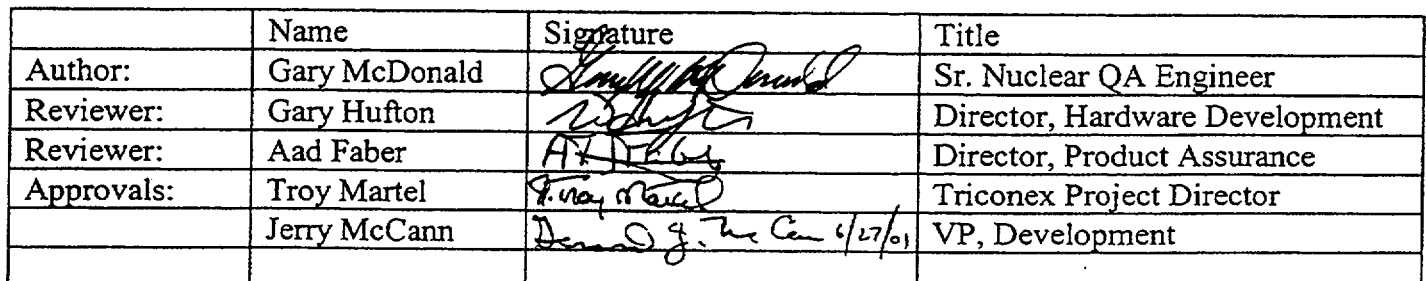 Name Signature Title
Author: Gary McDonald Sr. Nuclear QA Engineer
Reviewer: Gary Hufton Director, Hardware Development
Reviewer: Aad Faber Director, Product Assurance
Approvals: Troy Martel T. Troy Martel Triconex Project Director
Jerry McCann J. Mc Cann 6/27/01 VP, Development